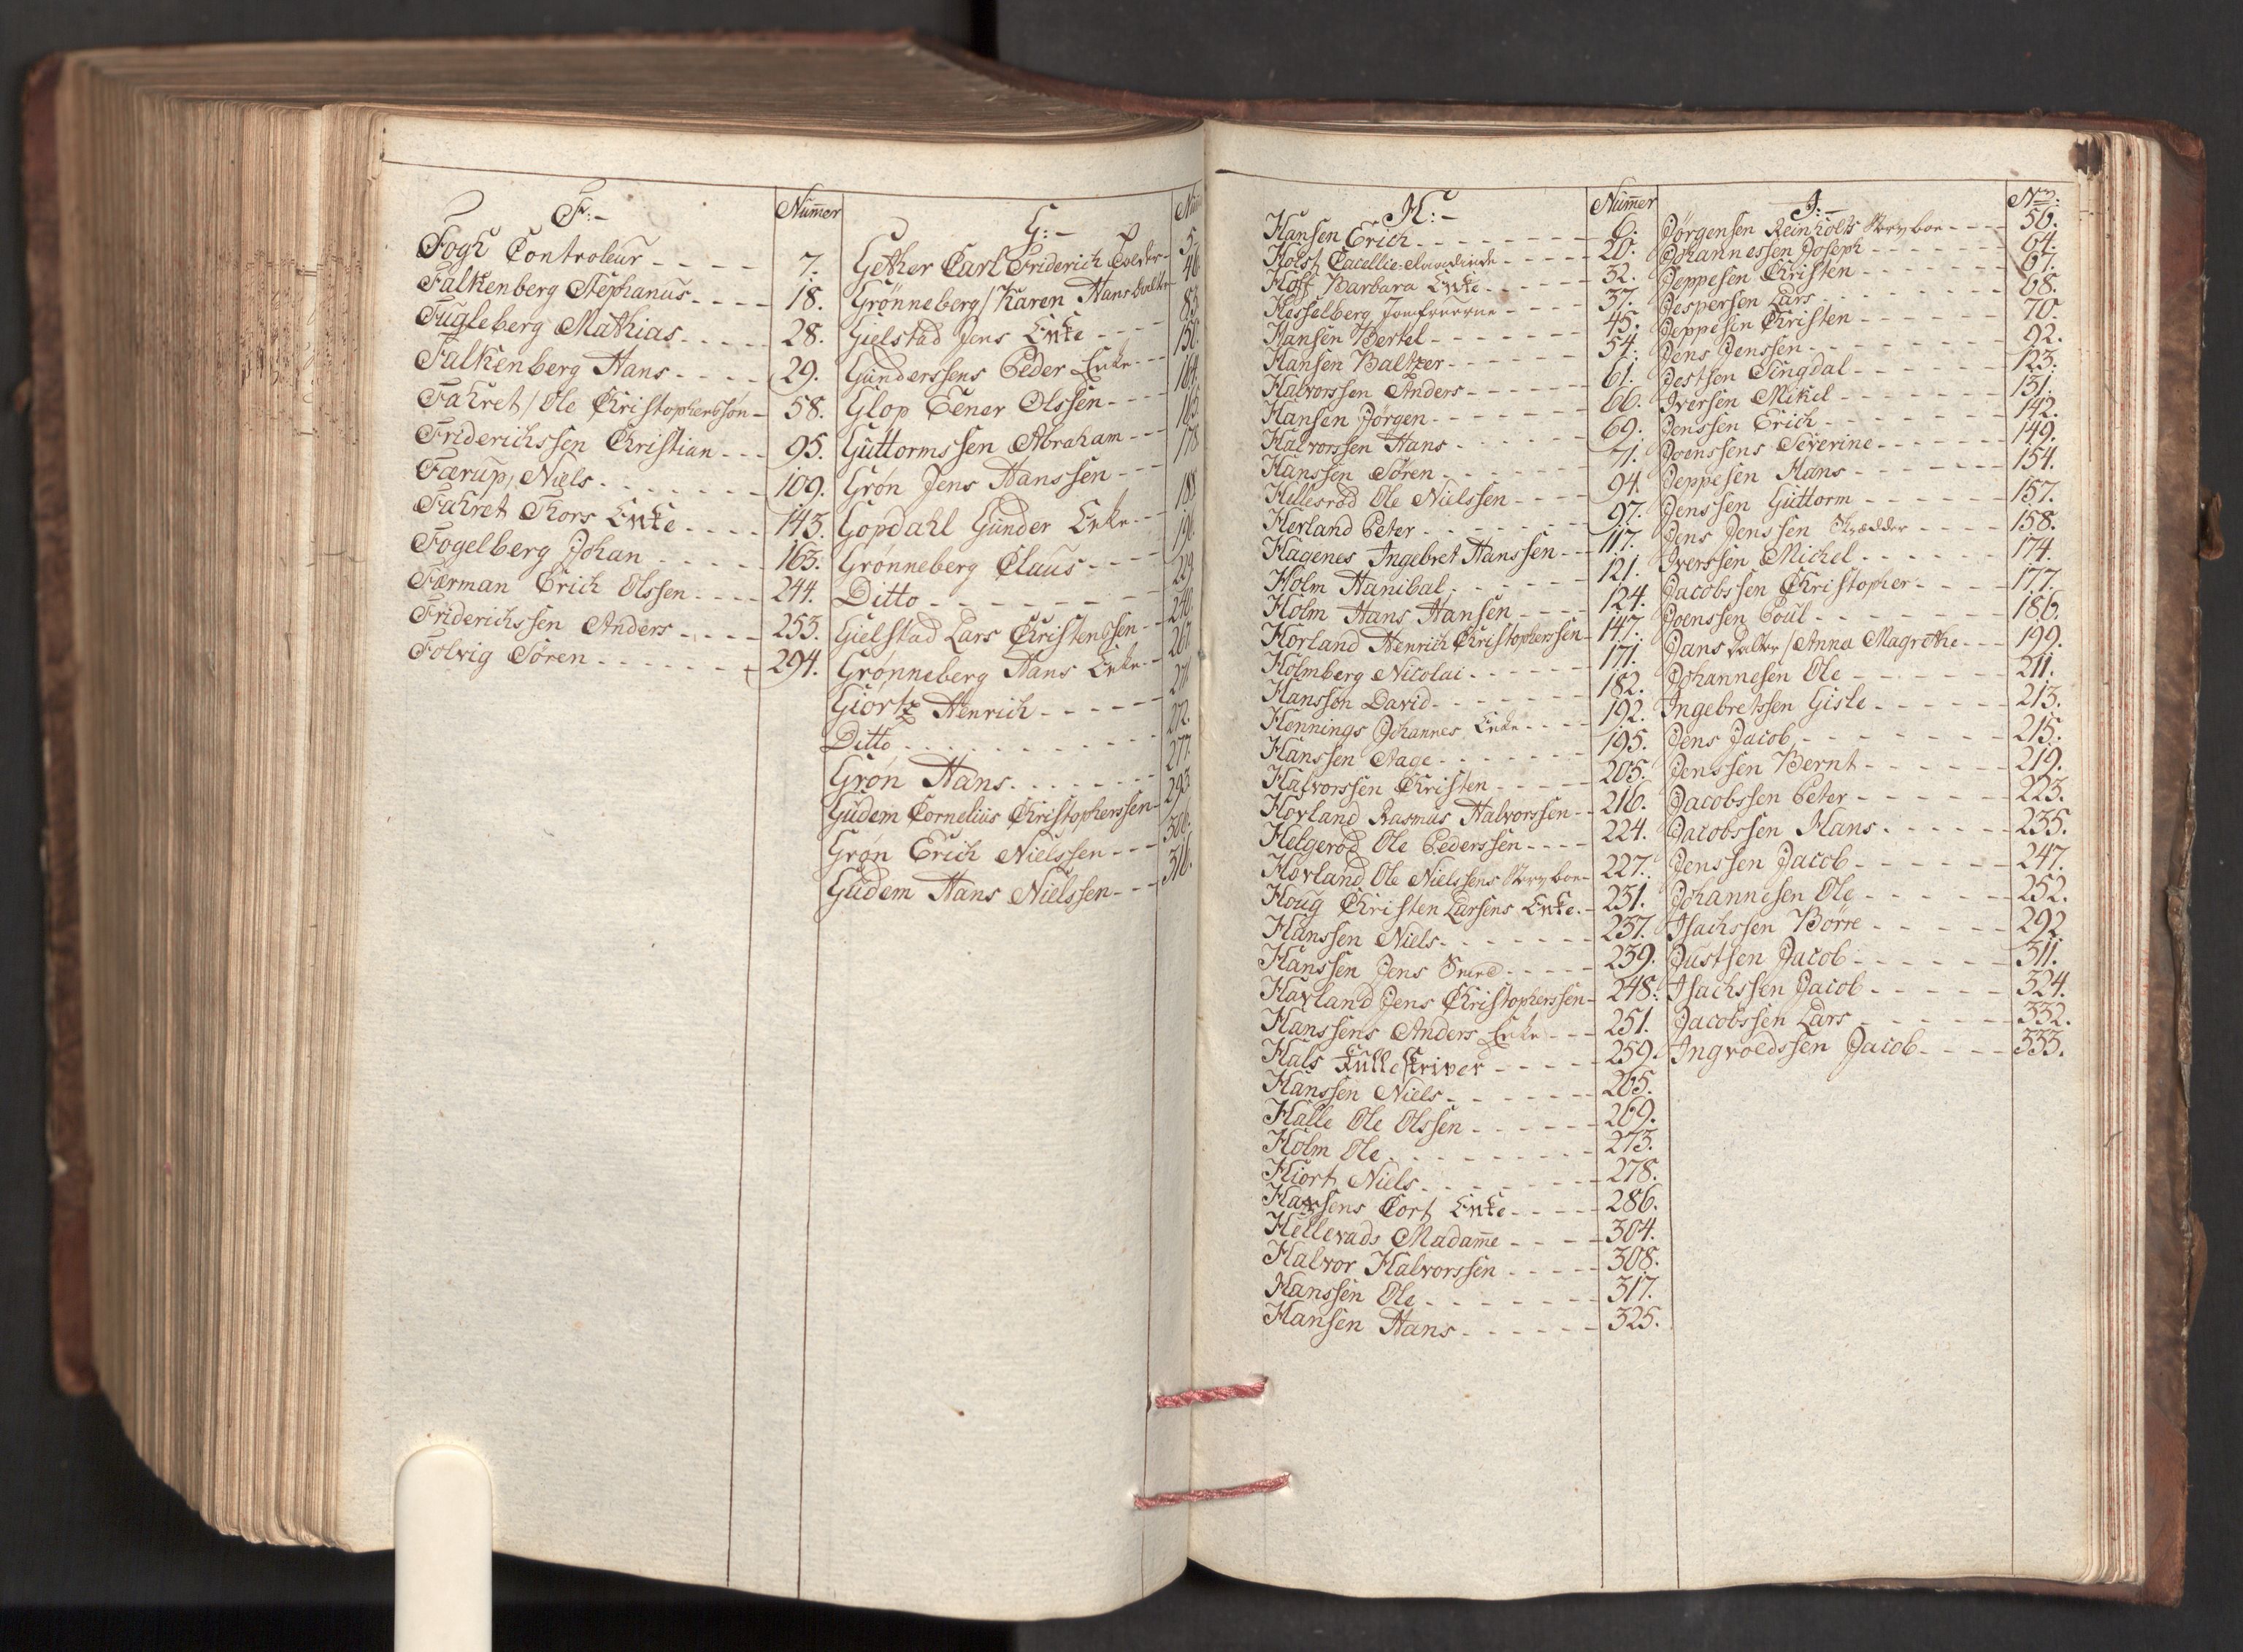 F:-
Numer
Fogh Controleur - - - - 7.
Falkenberg Stephanus - - - - 18.
Fugleberg Mathias - - - - - 28.
Falkenberg Hans - - - - 29.
Fahret / Ole Christophersøn - 58.
Friderichssen Christian - - - 95.
Færup, Niels - - - - - - - 109.
Fahret Thors Enke - - - - 143.
Fogelberg Johan - - - - - 163.
Færman Erich Olssen - - - - 244.
Friderichssen Anders - - - - 253.
Folvig Søren - - - - - - - 294.
G:-
Num
Gether Carl Friderich - 5.
Grønneberg / Karen Hansdatter 46
Gielstad Jens Enke - - - - 83
Gunderssens Peder Enke - - - 150
Glop Eener Olssen - - - - 164
Guttormssen Abraham - - - 165
Grøn Jens Hanssen - - - 178
Gopdahl Gunder Enke - - - 188
Grønneberg Claus - - - - 196
Ditto - - - - - - - - 229
Gielstad Lars Christenssen - - 240
Grønneberg Hans Enke - - 267
Giortz Henrich - - - - - - 271
Ditto - - - - - - - - - - 272.
Grøn Hans - - - - - - - 277.
Gudem Cornelius Christopherssen - 293
Grøn Erich Nielssen - - - 306.
Gudem Hans Nielssen - - - 316.
H:-
Numer
Hansen Erich - - - - - - - - 6.
Holst Cacellie - - - - - 20.
Hoff Barbara Enke - - - - - 32.
Hesselberg Jomfruerne - - - - 37.
Hansen Bertel - - - - - - - 45.
Hansen Baltzer - - - - - - - 54.
Halvorssen Anders - - - - - 61.
Hansen Jørgen - - - - - - - 66.
Halvorssen Hans - - - - - - 69.
Hanssen Søren - - - - - - - 71.
Hillesrød Ole Nielssen - - - - 94.
Herland Peter - - - - - - - 97.
Hagenes Ingebret Hanssen - - 117.
Holm Hanibal - - - - - - - 121.
Holm Hans Hansen - - - - 124.
Horland Henrich Christopherssen - 147.
Holmberg Nicolai - - - - - - 171.
Hanssen David - - - - - - - 182.
Hennings Johannes Enke - - - - 192.
Hanssen Aage - - - - - - - 195.
Halvorssen Christen - - - - - 205.
Hovland Rasmus Halvorssen - - 216.
Helgerød Ole Pederssen - - - - 224.
Hovland Ole Nielssens Stervboe - 227.
Houg Christen Larsens Enke. - 231.
Hanssen Niels - - - - - - - 237.
Hanssen Jens Smed - - - - - 239.
Havland Jens Christopherssen - 248.
Hanssens Anders Enke - - - 251.
Hals Fulleskriver - - - - - 259.
Hanssen Niels - - - - - - - 265.
Halle Ole Olssen - - - - - - 269.
Holm Ole - - - - - - - - - 273.
Hiort Niels - - - - - - - - 278.
Hansens Cort Enke - - - - - 286.
Hellevads Madame - - - - 304.
Halvor Halvorssen - - - - - 308.
Hanssen Ole - - - - - - - 317.
Hansen Hans - - - - - - 325.
I:-
No:
Jørgensen Reinholts Stervboe - - - - 56.
Johannessen Joseph - - - - - 64.
Jeppesen Christen - - - - - - - 67.
Jespersen Lars - - - - - - - - 68.
Jeppesen Christen - - - - - - - 70.
Jens Jenssen - - - - - - - - 92.
Jostsen Singdal - - - - - - - 123.
Iversen Mikel - - - - - - - 131.
Jenssen Erich - - - - - - - - 142.
Joenssens Severine - - - - - - 149.
Jeppesen Hans - - - - - - - 154.
Jenssen Guttorm - - - - - - 157.
Jens Jenssen Skrædder - - - - 158.
Iverssen Michel - - - - - - - 174.
Jacobssen Christopher - - - - - 177.
Joenssen Poul - - - - - - - - 186.
Jans datter / Anna Magrethe - - - 199.
Johannesen Ole - - - - - - - 211.
Ingebretssen Gisle - - - - - - 213.
Jens Jacob - - - - - - - - 215.
Jenssen Bernt - - - - - - - 219.
Jacobssen Peter - - - - - - - 223.
Jacobssen Hans - - - - - - 235.
Jenssen Jacob - - - - - - - 247.
Johannesen Ole - - - - - - - 252.
Isachssen Børre - - - - - - 292
Justsen Jacob - - - - - - - 311.
Isachssen Jacob - - - - - - 324.
Jacobssen Lars - - - - - - - 332.
Ingvoldssen Jacob - - - - 333.